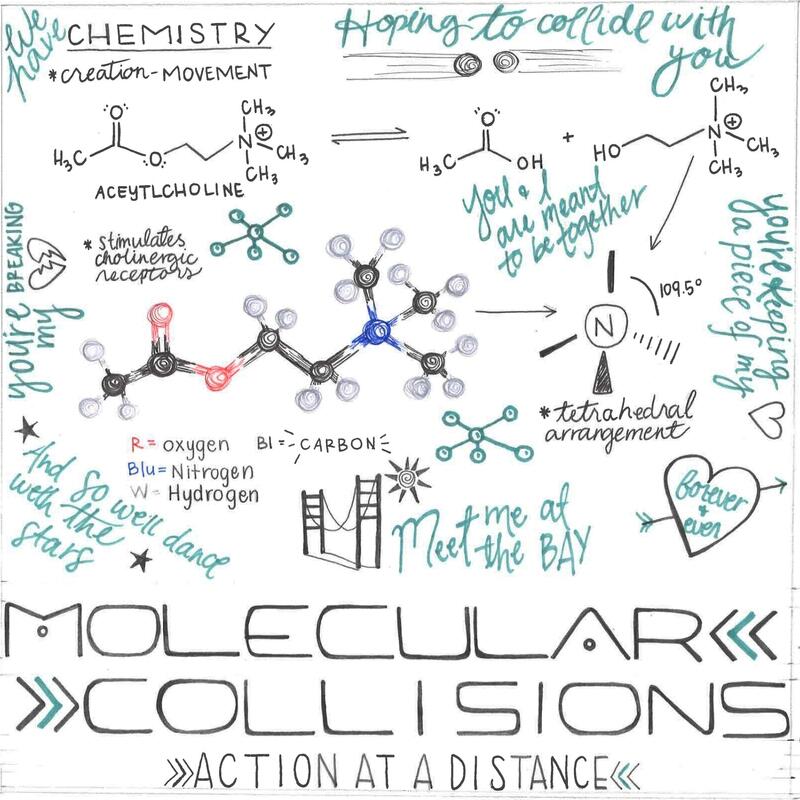 We have
CHEMISTRY
*creation-MOVEMENT
Hoping to collide with
you
:O:
H₃C
O
N⊕
CH₃
CH₃
CH₃
ACEYTLCHOLINE
:O:
H₃C
OH
+
HO
N⊕
CH₃
CH₃
CH₃
* stimulates
cholinergic
receptors
You & I
are meant
to be together
you're BREAKING
my
you're keeping
a piece of my
N
109.5°
*tetrahedral
arrangement
R= oxygen
Blu= Nitrogen
W= Hydrogen
Bl= CARBON
And so we'll dance
with the
stars
Meet me at
the BAY
forever
+
ever
MOLECULAR
COLLISIONS
ACTION AT A DISTANCE